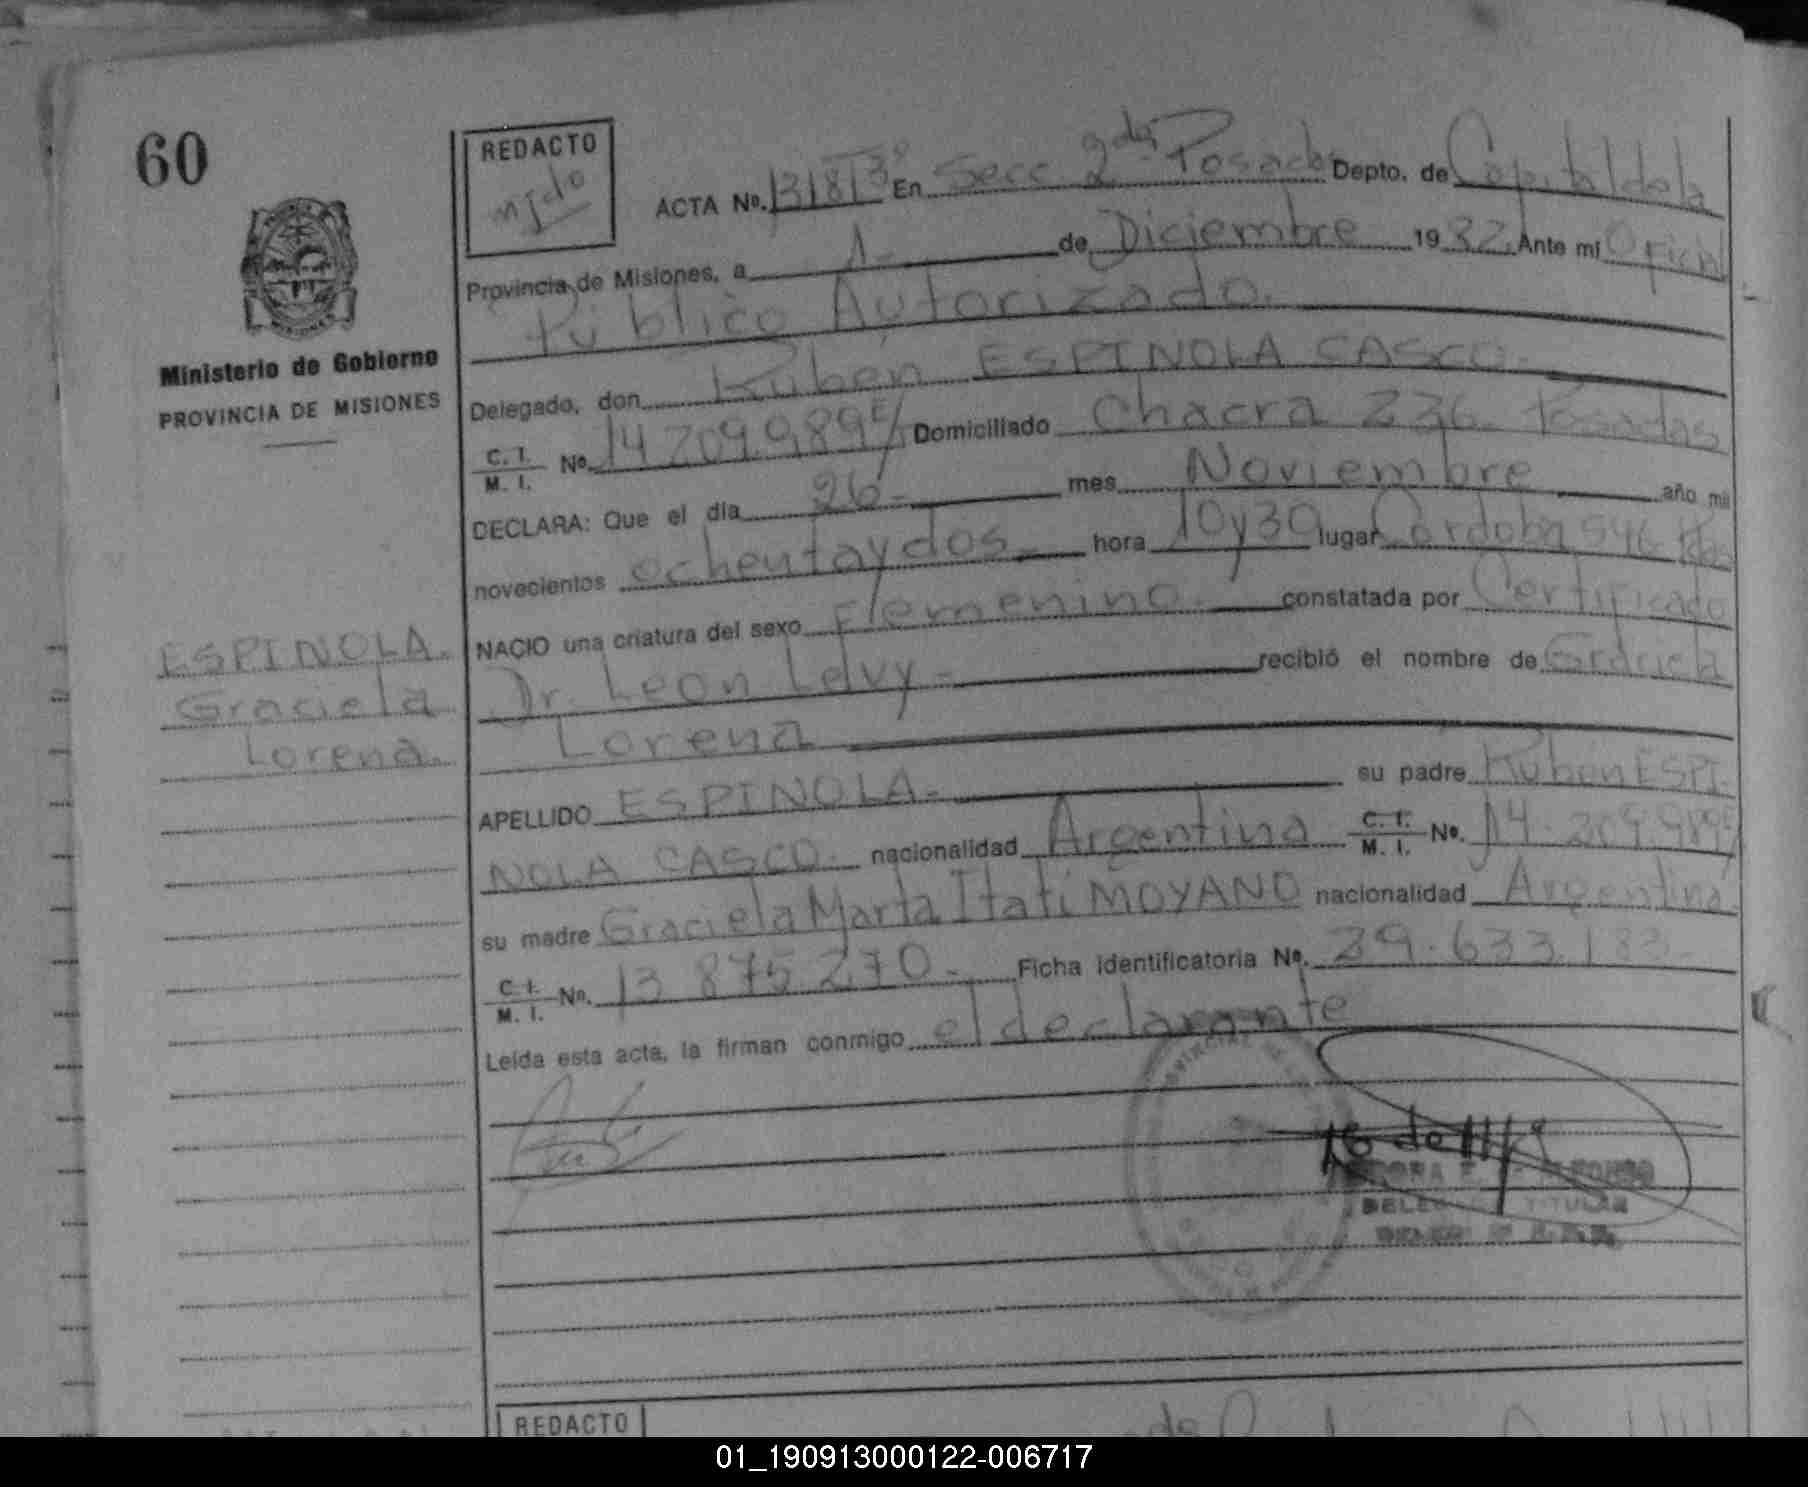 60
REDACTO
ACTA Nº. 1318T3º En Secc 2da Posadas Depto. de Capital de la
Provincia de Misiones, a 1- de Diciembre 1982. Ante mi Oficial
Público Autorizado.
Ministerio de Gobierno
PROVINCIA DE MISIONES
Delegado, don Rubén ESPINOLA CASCO.
C. I. M. I. Nº 14.209.989 Domiciliado Chacra 236. Posadas
DECLARA: Que el día 26- mes Noviembre año mil
novecientos ochenta y dos hora 10 y 30 lugar Cordoba 546 Pdas
NACIO una criatura del sexo Femenino. constatada por Certificado
Dr. León Levy - recibió el nombre de Graciela
Lorena
ESPINOLA.
Graciela
Lorena.
APELLIDO ESPINOLA. su padre Ruben ESPI-
NOLA CASCO. nacionalidad Argentina C. I. M. I. Nº. 14.209.989
su madre Graciela Marta Itatí MOYANO nacionalidad Argentina
C. I. M. I. Nº. 13.875.270- Ficha Identificatoria Nº. 29.633.183-
Leída esta acta, la firman conmigo el declarante
DELEGADO TITULAR
REDACTO
01_190913000122-006717